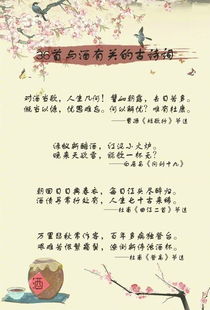 30首与酒有关的古诗词
对酒当歌，人生几何！譬如朝露，去日苦多。
慨当以慷，忧思难忘。何以解忧？唯有杜康。
——曹操《短歌行》节选
绿蚁新醅酒，红泥小火炉。
晚来天欲雪，能饮一杯无？
——白居易《问刘十九》
朝回日日典春衣，每日江头尽醉归。
酒债寻常行处有，人生七十古来稀。
——杜甫《曲江二首》节选
万里悲秋常作客，百年多病独登台。
艰难苦恨繁霜鬓，潦倒新停浊酒杯。
——杜甫《登高》节选
酒